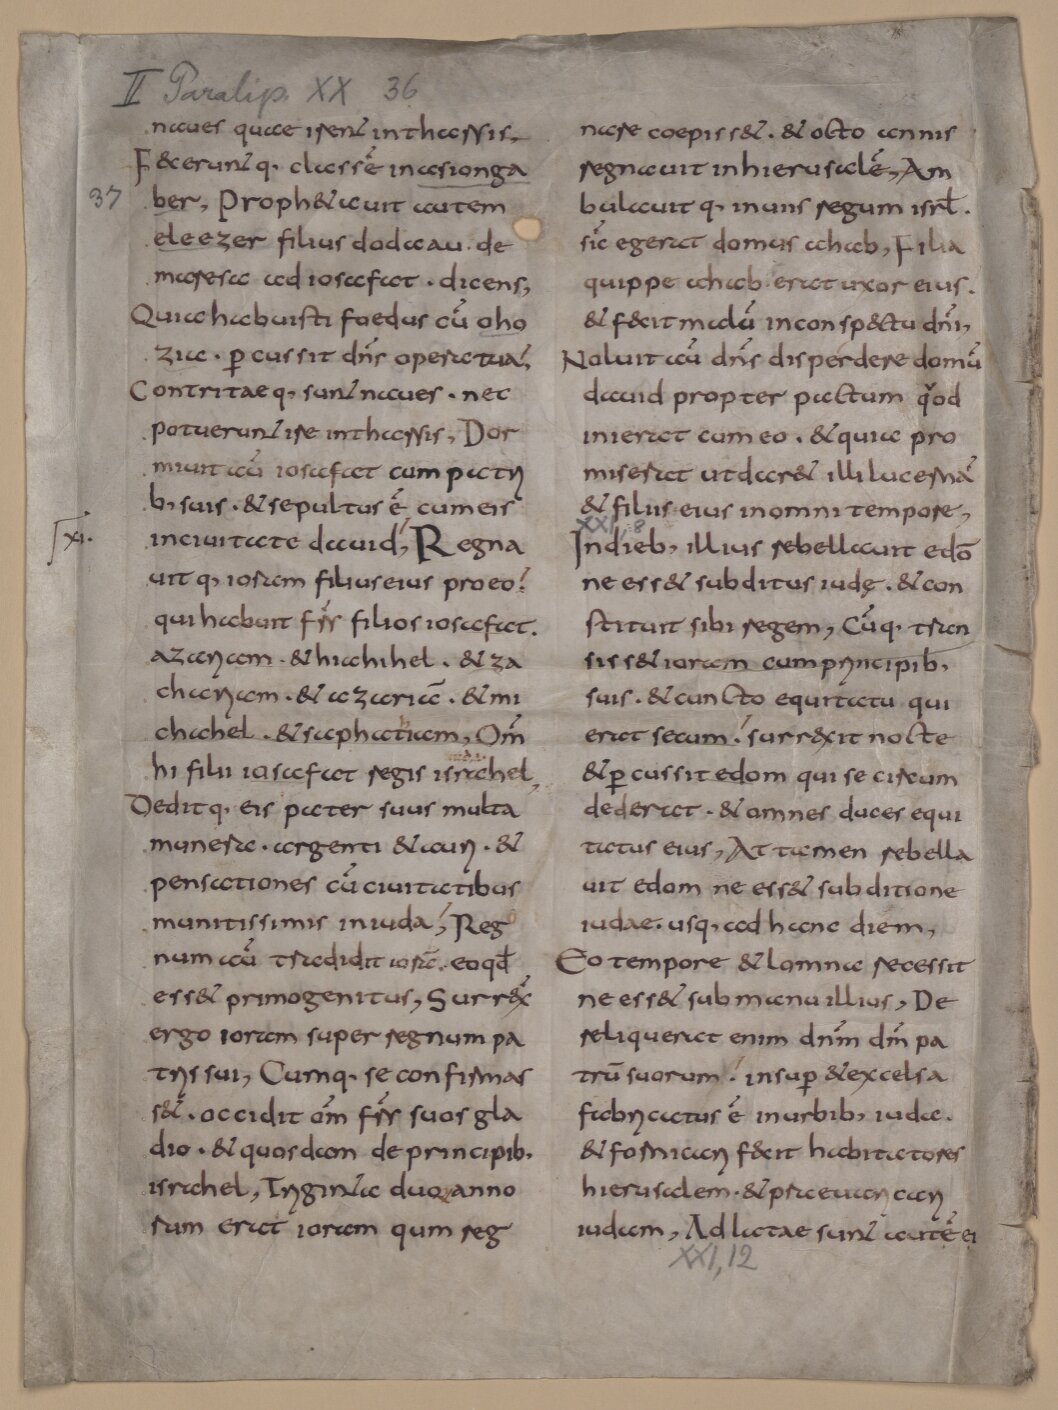 II Paralip. XX 36
naues quae irent in tharsis,
Fecerunt q, classē in asionga
37
ber, Prophetauit autem
eleezer filius dodaau. de
maresa ad iosafat. dicens,
Quia habuisti foedus cū oho
zia. p cussit dn̄s opera tua,
Contritaeq, sunt naues. nec
potuerunt ire in tharsis, Dor
miuit aū iosafat cum patri
b, suis. & sepultus ē cum eis
xxi.
in ciuitate dauid, Regna
uit q, ioram filius eius pro eo.
qui habuit frs̄ filios iosafat.
azariam. & hiahihel. & za
chariam. & azariā. & mi
chahel. & saphatiam, Om̄
hi filii iosafat regis israhel,
Deditq, eis pater suus multa
munera. argenti & auri. &
pensationes cū ciuitatibus
munitissimis in iuda, Reg
num aū tradidit iorā. eo qd̄
ess& primogenitus, Surrex̄
ergo ioram super regnum pa
tris sui, Cumq, se confirmas
s&. occidit om̄ frs̄ suos gla
dio. & quosdam de principib,
israhel, Triginta duo anno
rum erat ioram qum reg
nare coepiss&. & octo annis
regnauit in hierusalē, Am
bulauit q, in uiis regum isrl̄.
sic̄ egerat domus ahab, Filia
quippe ahab erat uxor eius.
& fecit malū in conspectu dn̄i,
Noluit aū dn̄s disperdere domū
dauid propter pactum quod
inierat cum eo. & quia pro
miserat ut dar& illi lucernā
& filiis eius in omni tempore,
XXI, 8
In dieb, illius rebellauit edō
ne ess& subditus iudę. & con
stituit sibi regem, Cūq, tran
siss& ioram cum principib,
suis. & cuncto equitatu qui
erat secum. surrexit nocte
& p cussit edom qui se circum
dederat. & omnes duces equi
tatus eius, At tamen rebella
uit edom ne ess& sub ditione
iudae. usq, ad hanc diem,
Eo tempore & lomna recessit
ne ess& sub manu illius, De
reliquerat enim dn̄m dm̄ pa
trū suorum. insup & excelsa
fabricatus ē in urbib, iuda.
& fornicari fecit habitatores
hierusalem. & praeuaricari
iudam, Adlatae sunt autē ei
XXI, 12